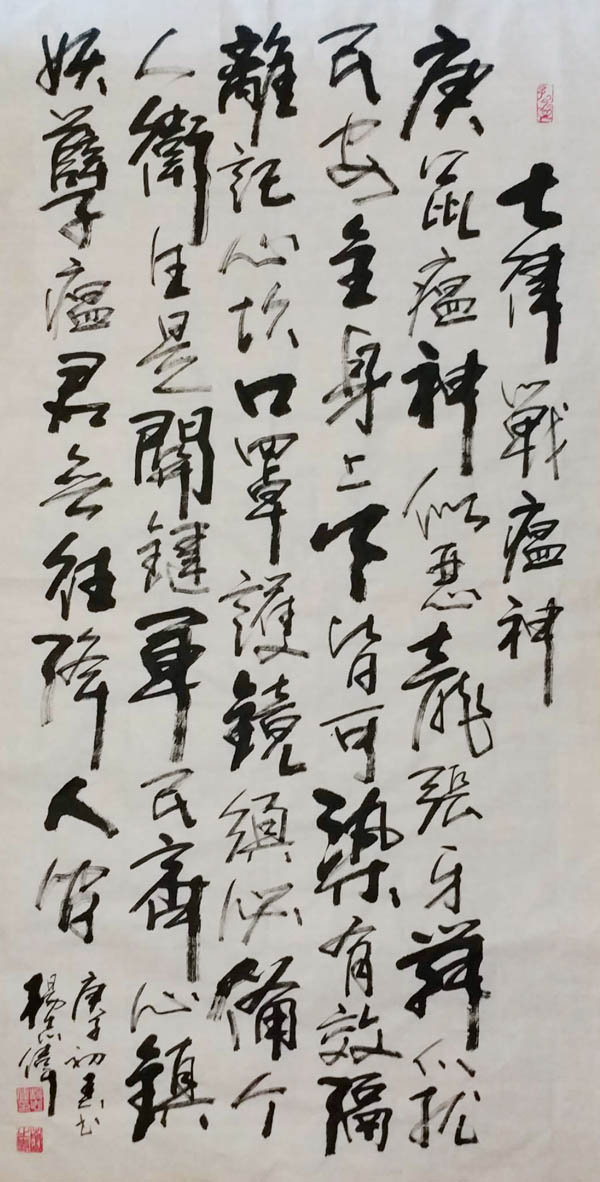 七律戰瘟神
庚鼠瘟神似惡龍張牙舞爪扰
民安全身上下皆可染有效隔
離記心坎口罩護鏡須必備个
人衛生是關鍵軍民齊心鎮
妖孽瘟君無往降人間
庚子初春书
楊志偉